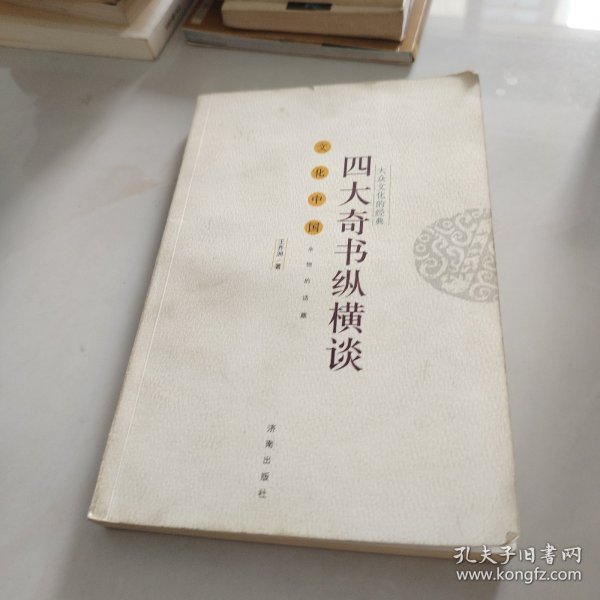 大众文化的经典
四大奇书纵横谈
文化中国
永恒的话题
王齐洲 著
济南出版社
孔夫子旧书网
www.kongfz.com